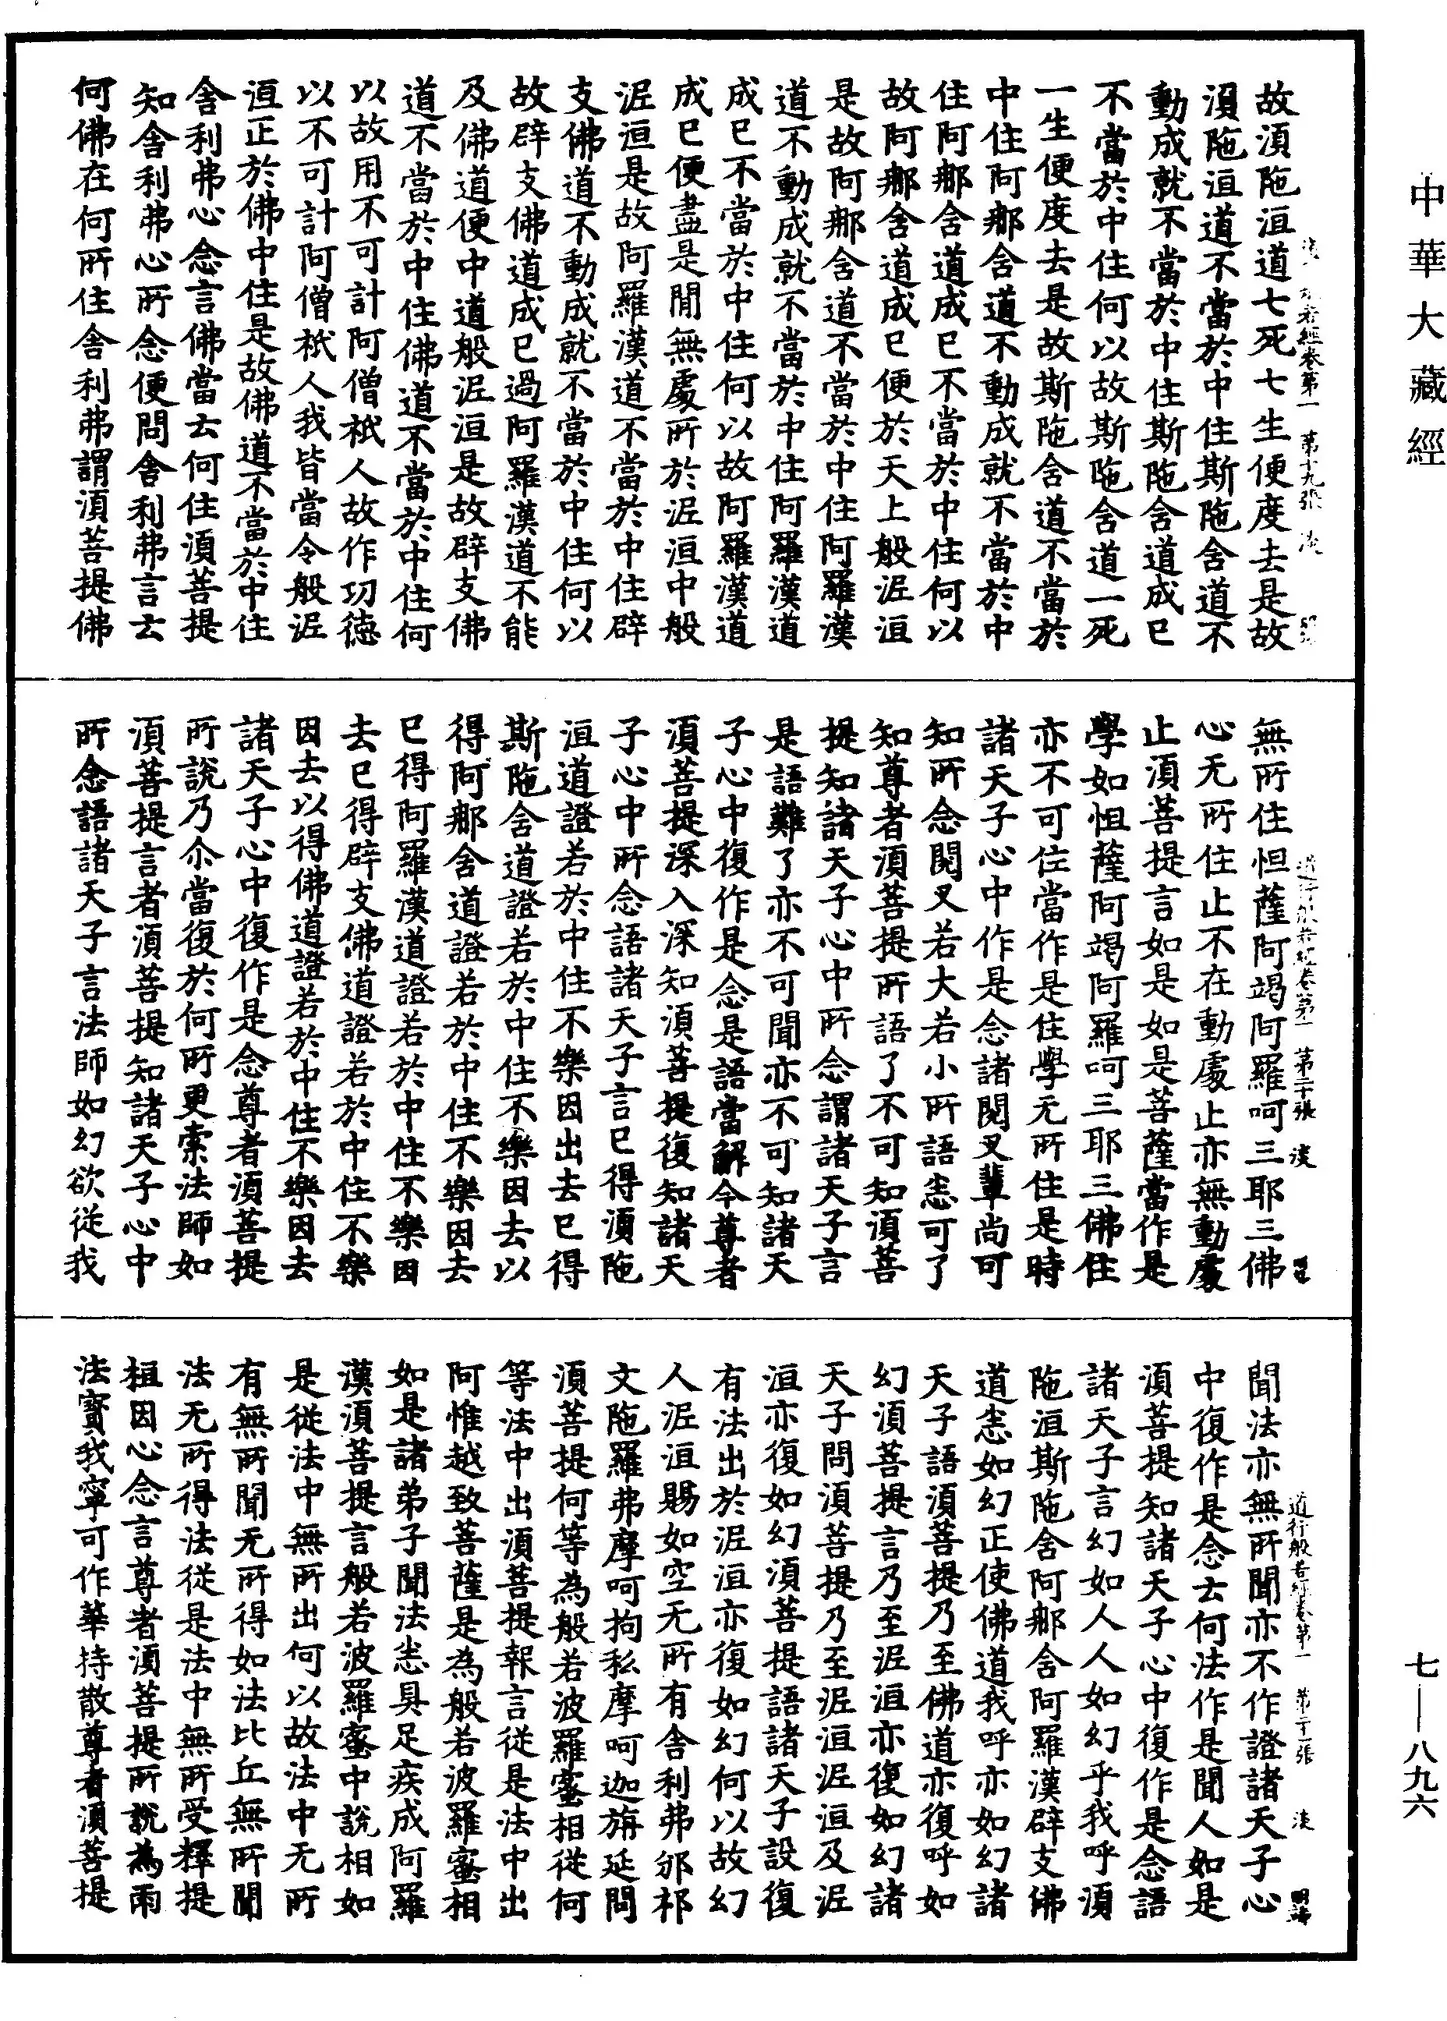 中華大藏經
七—八九六
故須陁洹道七死七生便度去是故
須陁洹道不當於中住斯陁含道不
動成就不當於中住斯陁含道成已
不當於中住何以故斯陁含道一死
一生便度去是故斯陁含道不當於
中住阿郍含道不動成就不當於中
住阿郍含道成已不當於中住何以
故阿郍含道成已便於天上般泥洹
是故阿郍含道不當於中住阿羅漢
道不動成就不當於中住阿羅漢道
成已不當於中住何以故阿羅漢道
成已便盡是閒無處所於泥洹中般
泥洹是故阿羅漢道不當於中住辟
支佛道不動成就不當於中住何以
故辟支佛道成已過阿羅漢道不能
及佛道便中道般泥洹是故辟支佛
道不當於中住佛道不當於中住何
以故用不可計阿僧祇人故作功德
以不可計阿僧祇人我皆當令般泥
洹正於佛中住是故佛道不當於中住
舍利弗心念言佛當云何住須菩提
知舍利弗心所念便問舍利弗言云
何佛在何所住舍利弗謂須菩提佛
道行般若經卷第一 第二十張 淡
無所住怛薩阿竭阿羅呵三耶三佛
心无所住止不在動處止亦無動處
止須菩提言如是如是菩薩當作是
學如怛薩阿竭阿羅呵三耶三佛住
亦不可住當作是住學无所住是時
諸天子心中作是念諸閱叉輩尚可
知所念閱叉若大若小所語悉可了
知尊者須菩提所語了不可知須菩
提知諸天子心中所念謂諸天子言
是語難了亦不可聞亦不可知諸天
子心中復作是念是語當解今尊者
須菩提深入深知須菩提復知諸天
子心中所念語諸天子言已得須陁
洹道證若於中住不樂因出去已得
斯陁含道證若於中住不樂因去以
得阿郍含道證若於中住不樂因去
已得阿羅漢道證若於中住不樂因
去已得辟支佛道證若於中住不樂
因去以得佛道證若於中住不樂因去
諸天子心中復作是念尊者須菩提
所說乃尒當復於何所更索法師如
須菩提言者須菩提知諸天子心中
所念語諸天子言法師如幻欲從我
道行般若經卷第一 第二十一張 淡
聞法亦無所聞亦不作證諸天子心
中復作是念云何法作是聞人如是
須菩提知諸天子心中復作是念語
諸天子言幻如人人如幻乎我呼須
陁洹斯陁含阿郍含阿羅漢辟支佛
道悉如幻正使佛道我呼亦如幻諸
天子語須菩提乃至佛道亦復呼如
幻須菩提言乃至泥洹亦復如幻諸
天子問須菩提乃至泥洹泥洹及泥
洹亦復如幻須菩提語諸天子設復
有法出於泥洹亦復如幻何以故幻
人泥洹賜如空无所有舍利弗邠祁
文陁羅弗摩呵拘私摩呵迦旃延問
須菩提何等為般若波羅蜜相從何
等法中出須菩提報言從是法中出
阿惟越致菩薩是為般若波羅蜜相
如是諸弟子聞法悉具足疾成阿羅
漢須菩提言般若波羅蜜中說相如
是從法中無所出何以故法中无所
有無所聞无所得如法比丘無所聞
法无所得法從是法中無所受釋提
桓因心念言尊者須菩提所說為雨
法寶我寧可作華持散尊者須菩提